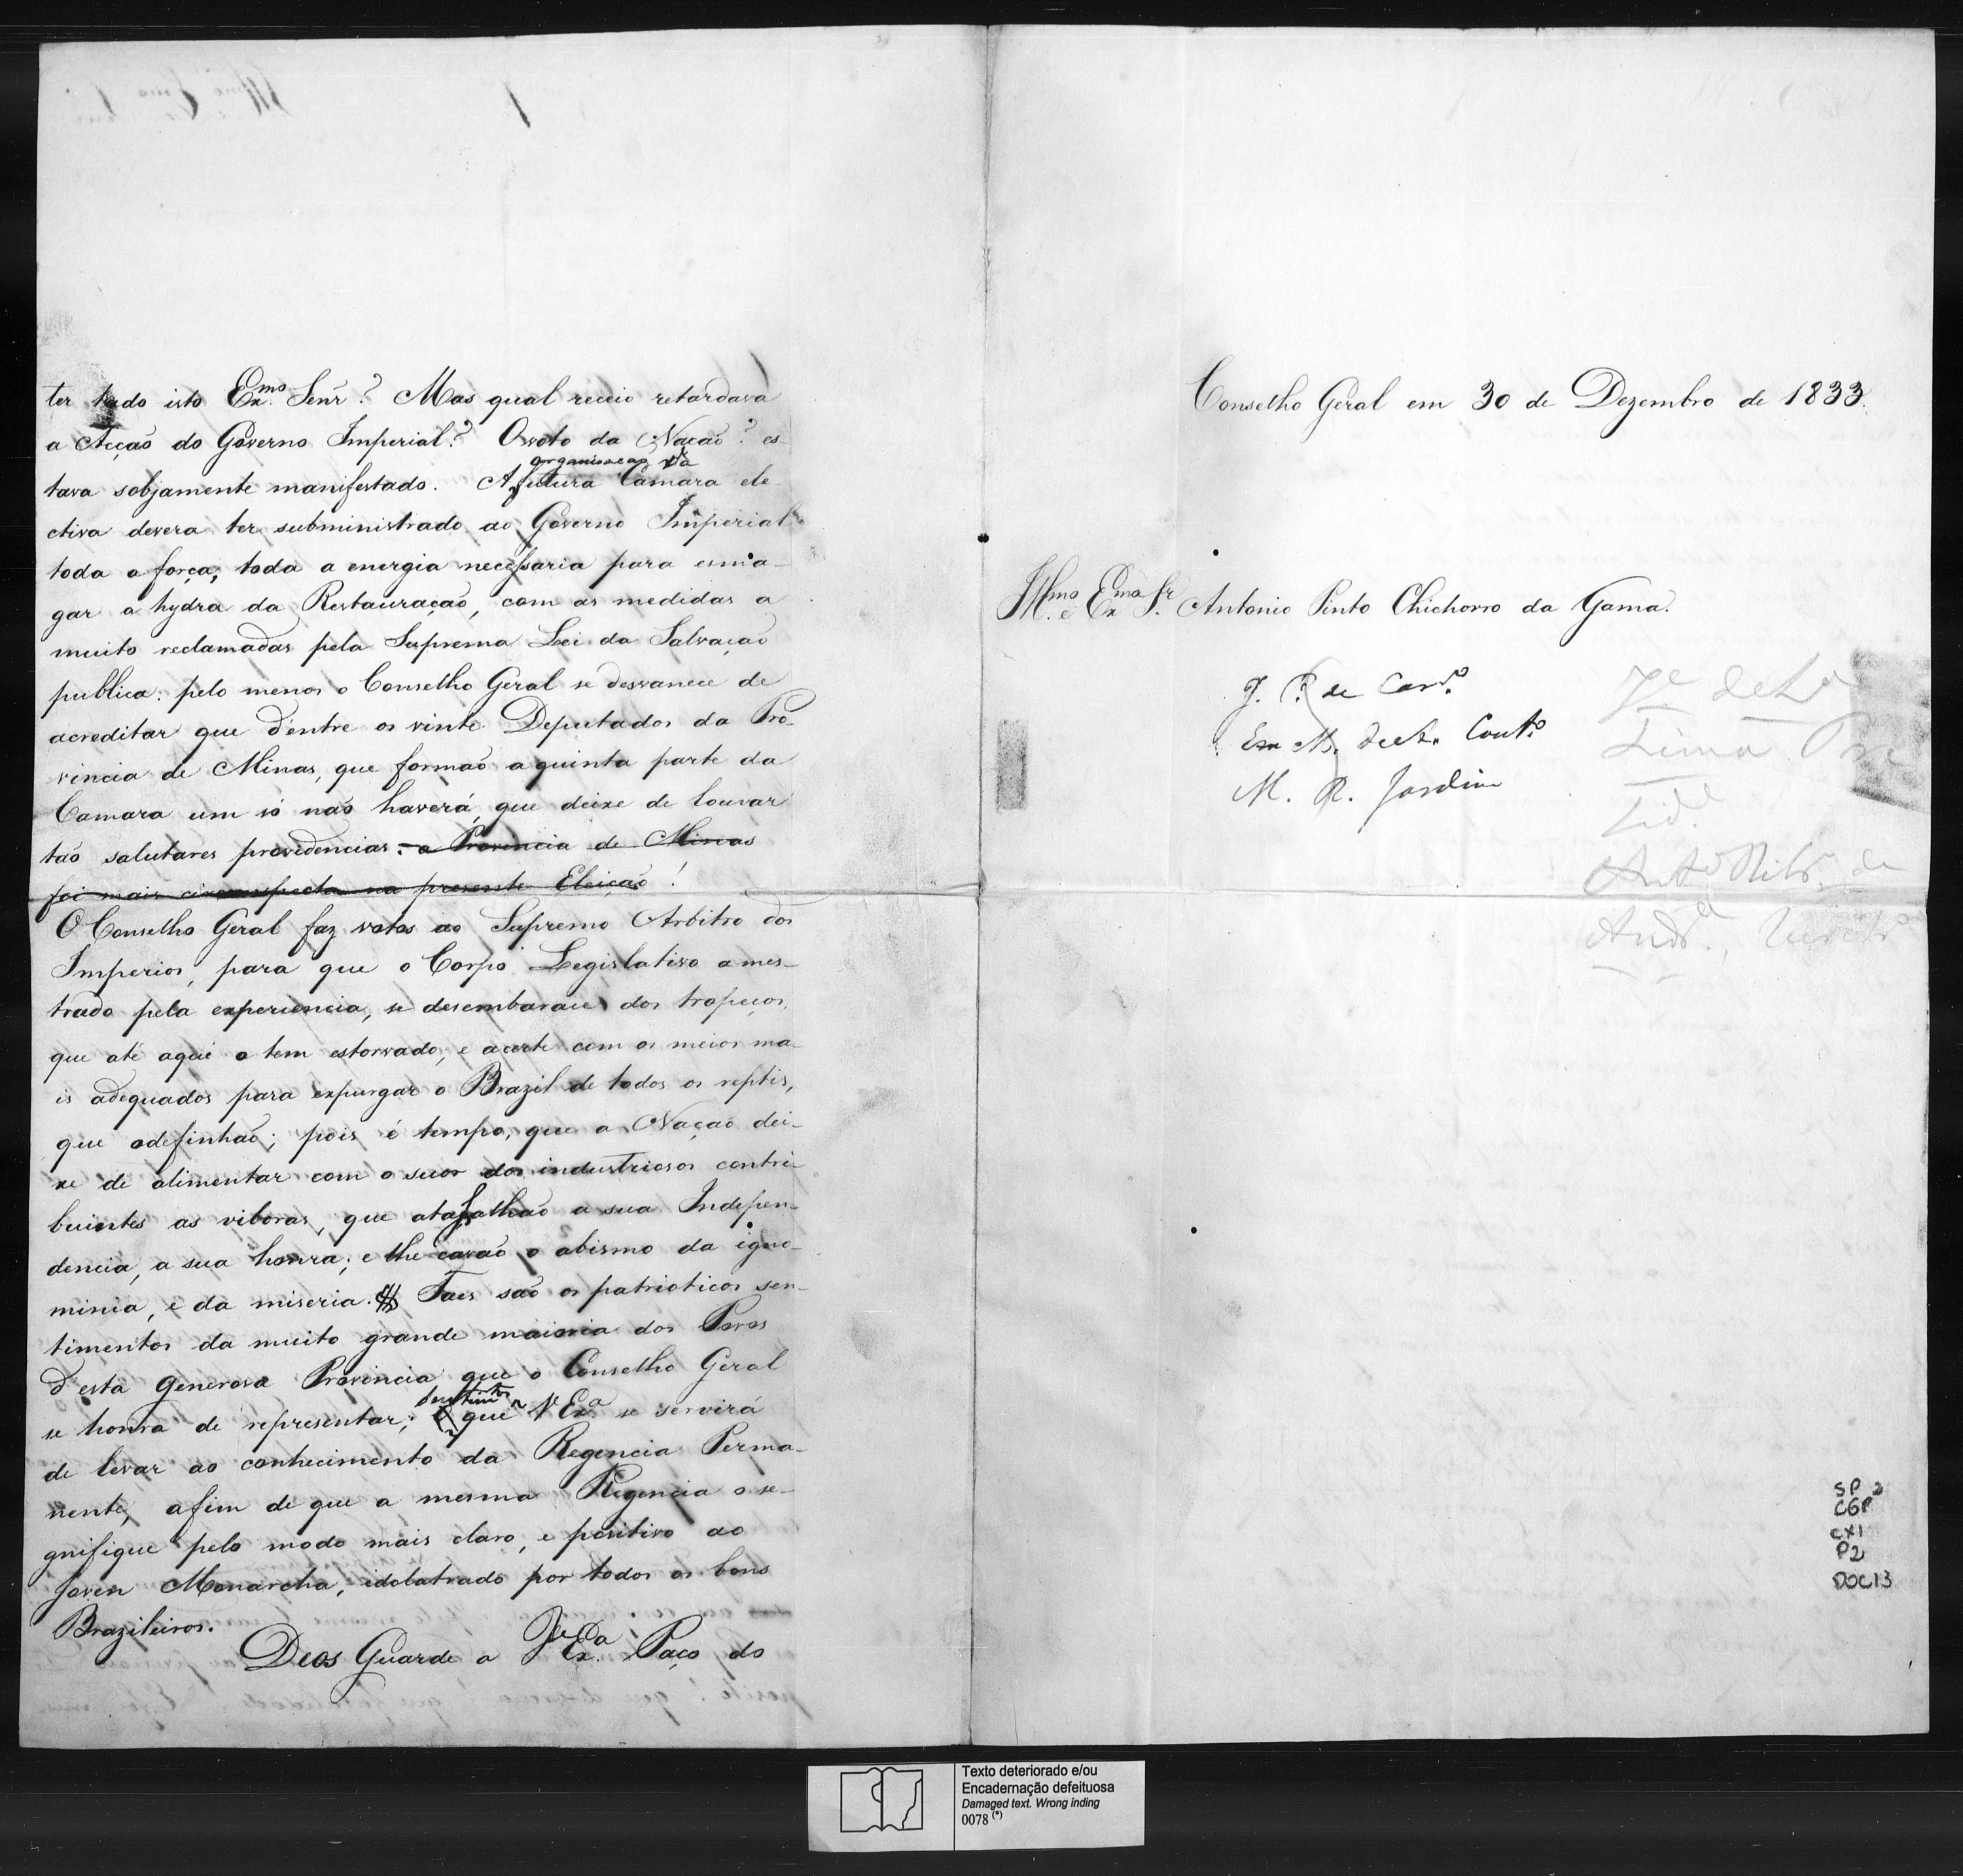 ter tudo isto Exmo. Senr.? Mas qual receio retardava
a Acção do Governo Imperial? O voto da Nação? es-
tava sobjamente manifestado. A organisação da futura Camara ele-
ctiva devera ter subministrado ao Governo Imperial
toda a força, toda a energia necessaria para esma-
gar a hydra da Restauração, com as medidas a
muito reclamadas pela Suprema Lei da Salvação
publica: pelo menos o Conselho Geral se desvanece de
acreditar que d'entre os vinte Deputados da Pro-
vincia de Minas, que formão a quinta parte da
Camara um só não haverá, que deixe de louvar
tão salutares providencias: a Provincia de Minas
foi mais circunspecta na presente Eleição!
O Conselho Geral faz votos ao Supremo Arbitro dos
Imperios, para que o Corpo Legislativo ames-
trado pela experiencia, se desembarace dos tropeços,
que até aqui o tem estorvado; e acerte com os meios ma-
is adequados para expurgar o Brazil de todos os reptis,
que o definhão; pois é tempo, que a Nação dei-
xe de alimentar com o suor dos industriosos contri-
buintes as viboras, que atassalhão a sua Indepen-
dencia, a sua honra; e lhe cavão o abismo da igno-
minia, e da miseria. Taes são os patrioticos sen-
timentos da muito grande maioria dos Povos
d'esta generosa Provincia que o Conselho Geral
se honra de representar; sentimtos que V. Exa. se servirá
de levar ao conhecimento da Regencia Perma-
nente, afim de que a mesma Regencia o se-
gnifique pelo modo mais claro, e positivo ao
Joven Monarcha, idolatrado por todos os bons
Brazileiros.
Deos Guarde a V. Exa. Paço do
Conselho Geral em 30 de Dezembro de 1833.
Illmo. e Exmo. Sr. Antonio Pinto Chichorro da Gama.
J. P. de Carvo.
M. Couto.
M. R. Jardim
Lima
SP 2
CGP
CX1
P2
DOC13
Texto deteriorado e/ou
Encadernação defeituosa
Damaged text. Wrong inding
0078 (*)